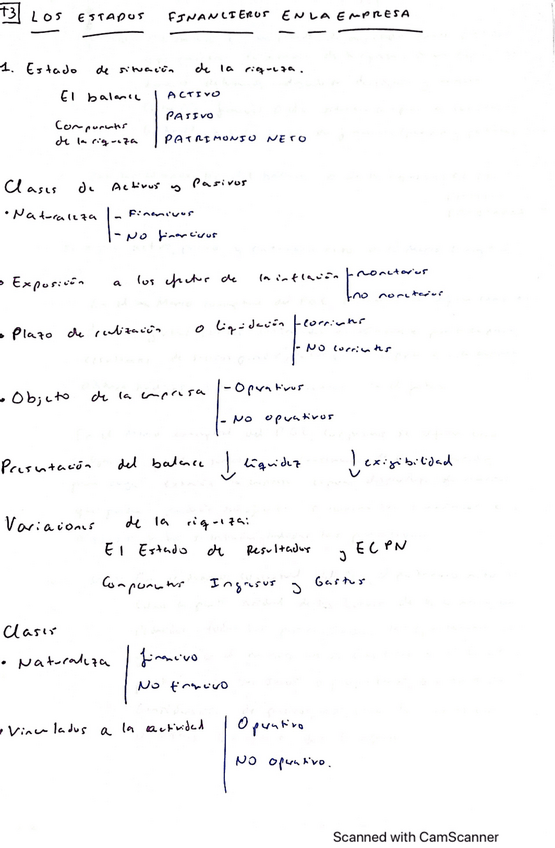 T3 LOS ESTADOS FINANCIEROS EN LA EMPRESA
1. Estado de situación de la riqueza.
El balance | ACTIVO
PASIVO
Componentes de la riqueza | PATRIMONIO NETO
Clases de Activos y Pasivos
• Naturaleza | - Financieros
- NO financieros
• Exposición a los efectos de la inflación | - monetarios
- no monetarios
• Plazo de realización o liquidación | - corrientes
- NO corrientes
• Objeto de la empresa | - Operativos
- NO operativos
Presentación del balance ↓ liquidez ↓ exigibilidad
Variaciones de la riqueza:
El Estado de Resultados y ECPN
Componentes Ingresos y Gastos
Clases
• Naturaleza | financiero
NO financiero
• Vinculados a la actividad | Operativo
NO operativo.
Scanned with CamScanner